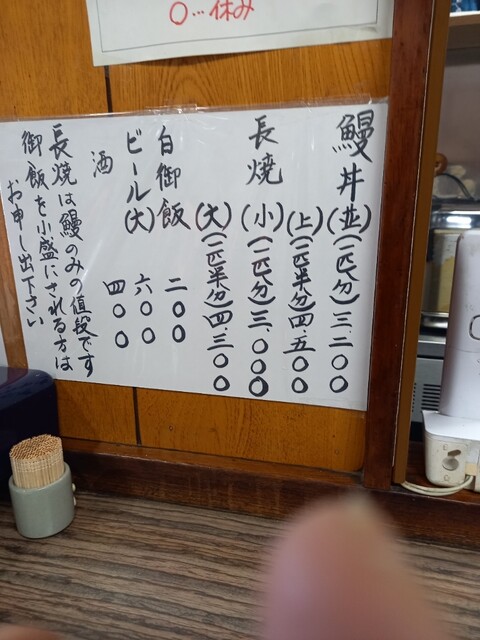 〇…休み
鰻丼(並)(一匹分)三.二〇〇
(上)(一匹半分)四.五〇〇
長焼(小)(一匹分)三.〇〇〇
(大)(一匹半分)四.三〇〇
白御飯 二〇〇
ビール(大) 六〇〇
酒 四〇〇
長焼は鰻のみの値段です
御飯を小盛にされる方は
お申し出下さい